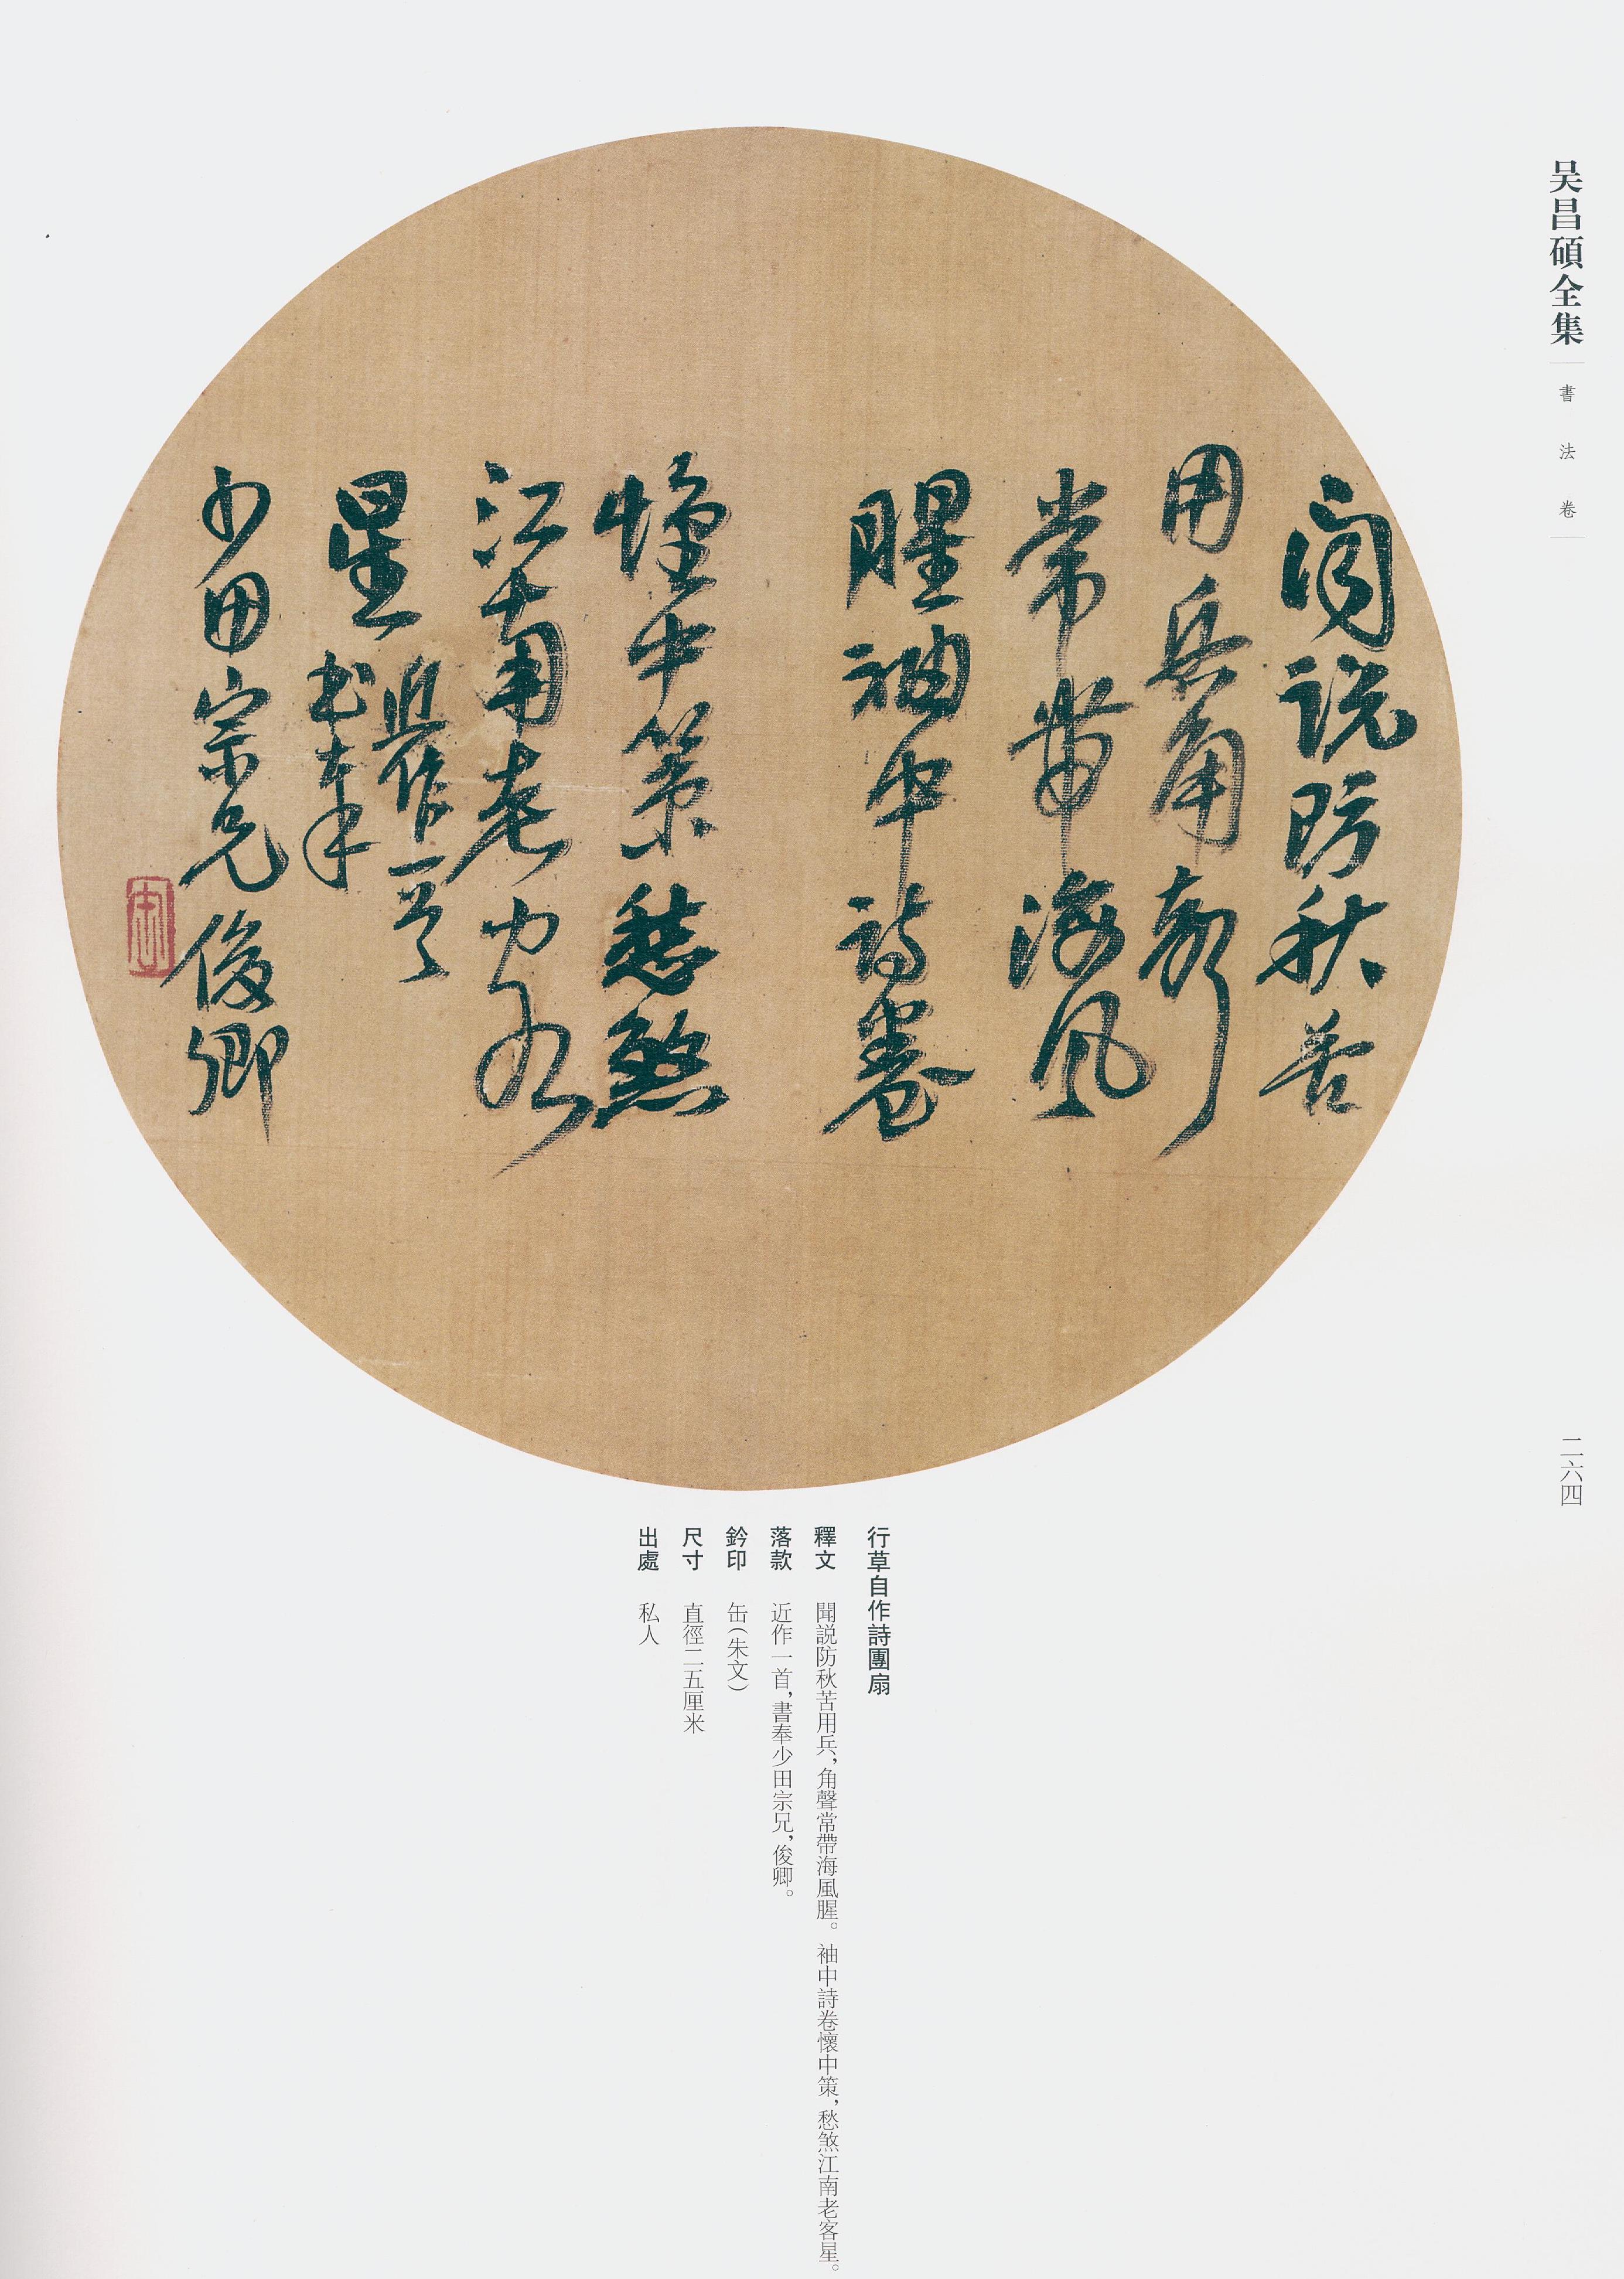 吴昌碩全集
書法卷
二六四
聞説防秋苦
用兵角聲
常帶海風
腥袖中詩卷
懷中策愁煞
江南老客
星
近作一首
書奉
少田宗兄俊卿
缶
行草自作詩團扇
釋文 聞説防秋苦用兵，角聲常帶海風腥。袖中詩卷懷中策，愁煞江南老客星。
落款 近作一首，書奉少田宗兄，俊卿。
鈐印 缶（朱文）
尺寸 直徑二五厘米
出處 私人